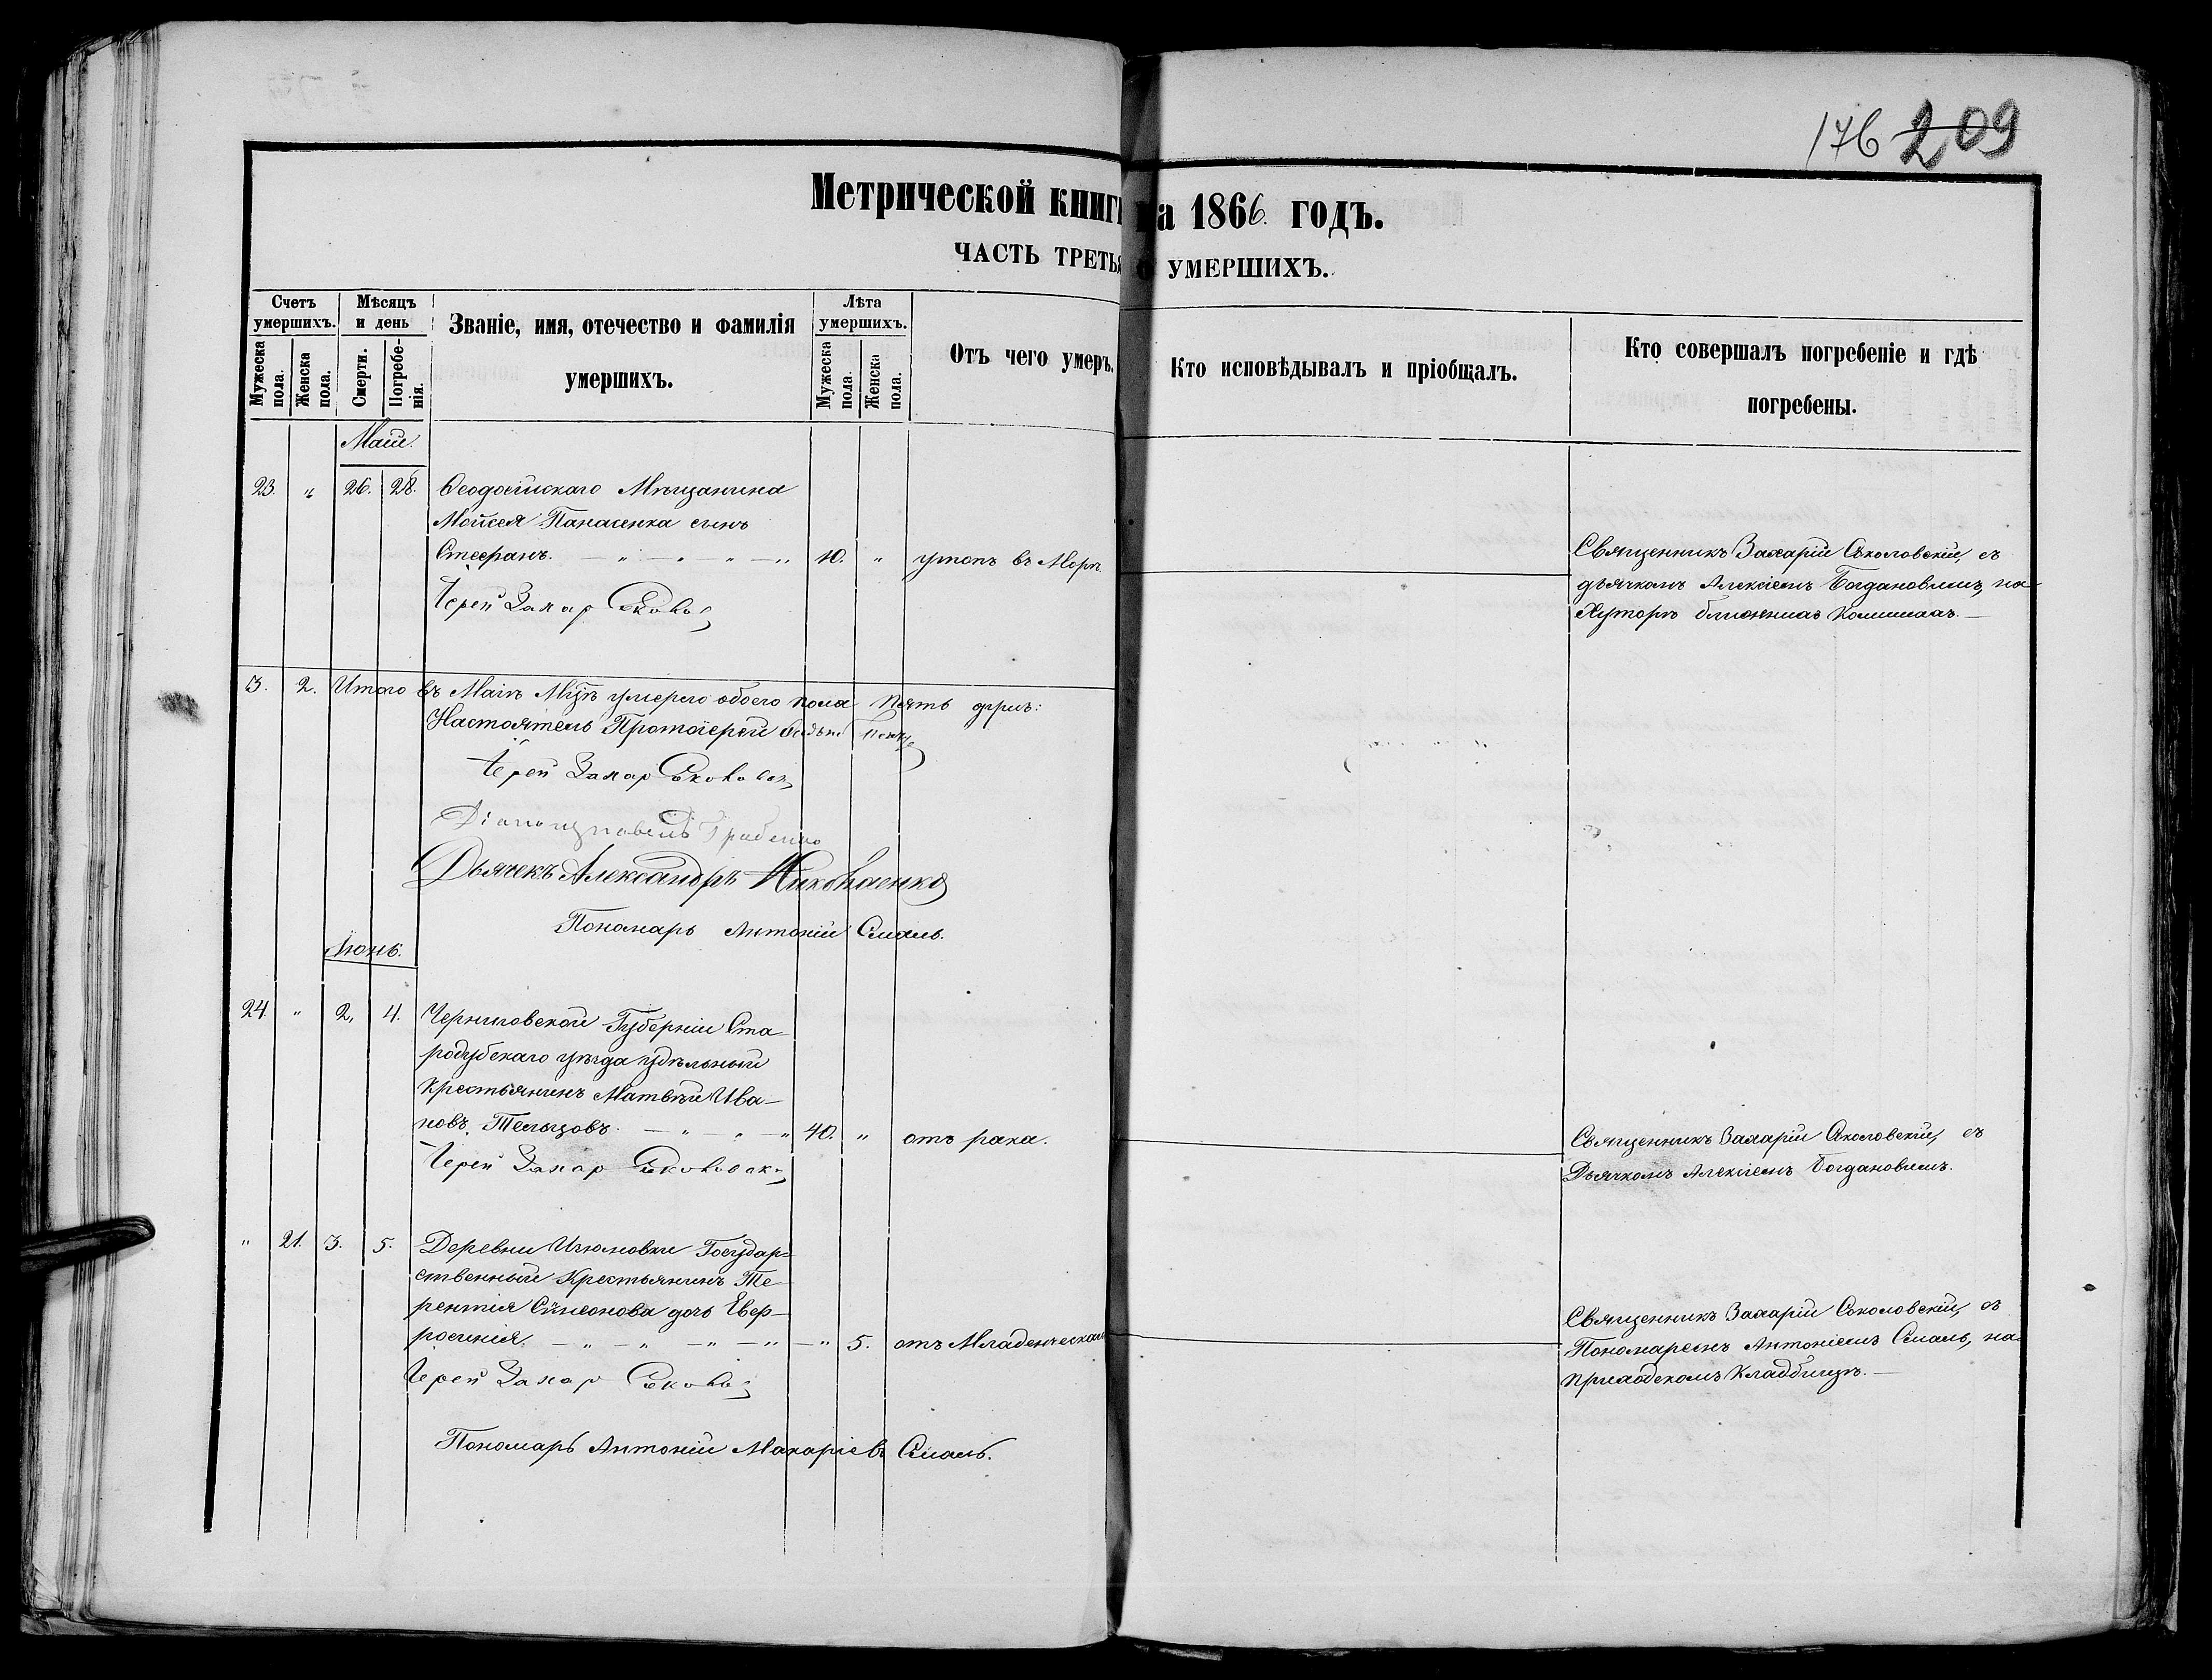 176 209
Метрической книги на 1866. годъ.
ЧАСТЬ ТРЕТЬЯ о УМЕРШИХЪ.
Счетъ умершихъ.
Мужеска пола.
Женска пола.
Мѣсяцъ и день
Смерти.
Погребенія.
Званіе, имя, отечество и фамилія умершихъ.
Лѣта умершихъ.
Мужеска пола.
Женска пола.
Отъ чего умеръ.
Кто исповѣдывалъ и пріобщалъ.
Кто совершалъ погребеніе и гдѣ погребены.
Маій.
23. " 26. 28. Ѳеодосійскаго Мѣщанина
Моисея Панасенка сынъ
Стефанъ. — " — " — " 10. " утопъ въ Морѣ.
Іерей Захар
Священникъ Захарій Соколовскій, съ
дьячкомъ Алексіемъ Богдановымъ, на
Хуторѣ ближнихъ Камышахъ. —
3. 2. Итого въ Маіѣ Мцѣ умерло обоего пола пять душъ:
Настоятель Протоіерей
Іерей Захар
Дьячекъ Александръ Николаенко
Пономарь Антоній Смаль.
Іюнь.
24. " 2. 4. Черниговской Губерніи Ста-
родубскаго уѣзда удѣльный
крестьянинъ Матвѣй Ива-
новъ Тельцовъ. — " — " — " 40. " отъ рака.
Іерей Захар
Священникъ Захарій Соколовскій, съ
Дьячкомъ Алексіемъ Богдановымъ.
" 21. 3. 5. Деревни Государ-
ственный Крестьянинъ Те-
рентія Симеонова дочь Евф-
росинія. — " — " — " — " — " 5. отъ Младенческаго
Іерей Захар
Священникъ Захарій Соколовскій, съ
Пономаремъ Антоніемъ Смаль, на
приходскомъ Кладбищѣ. —
Пономарь Антоній Макаріевъ Смаль.